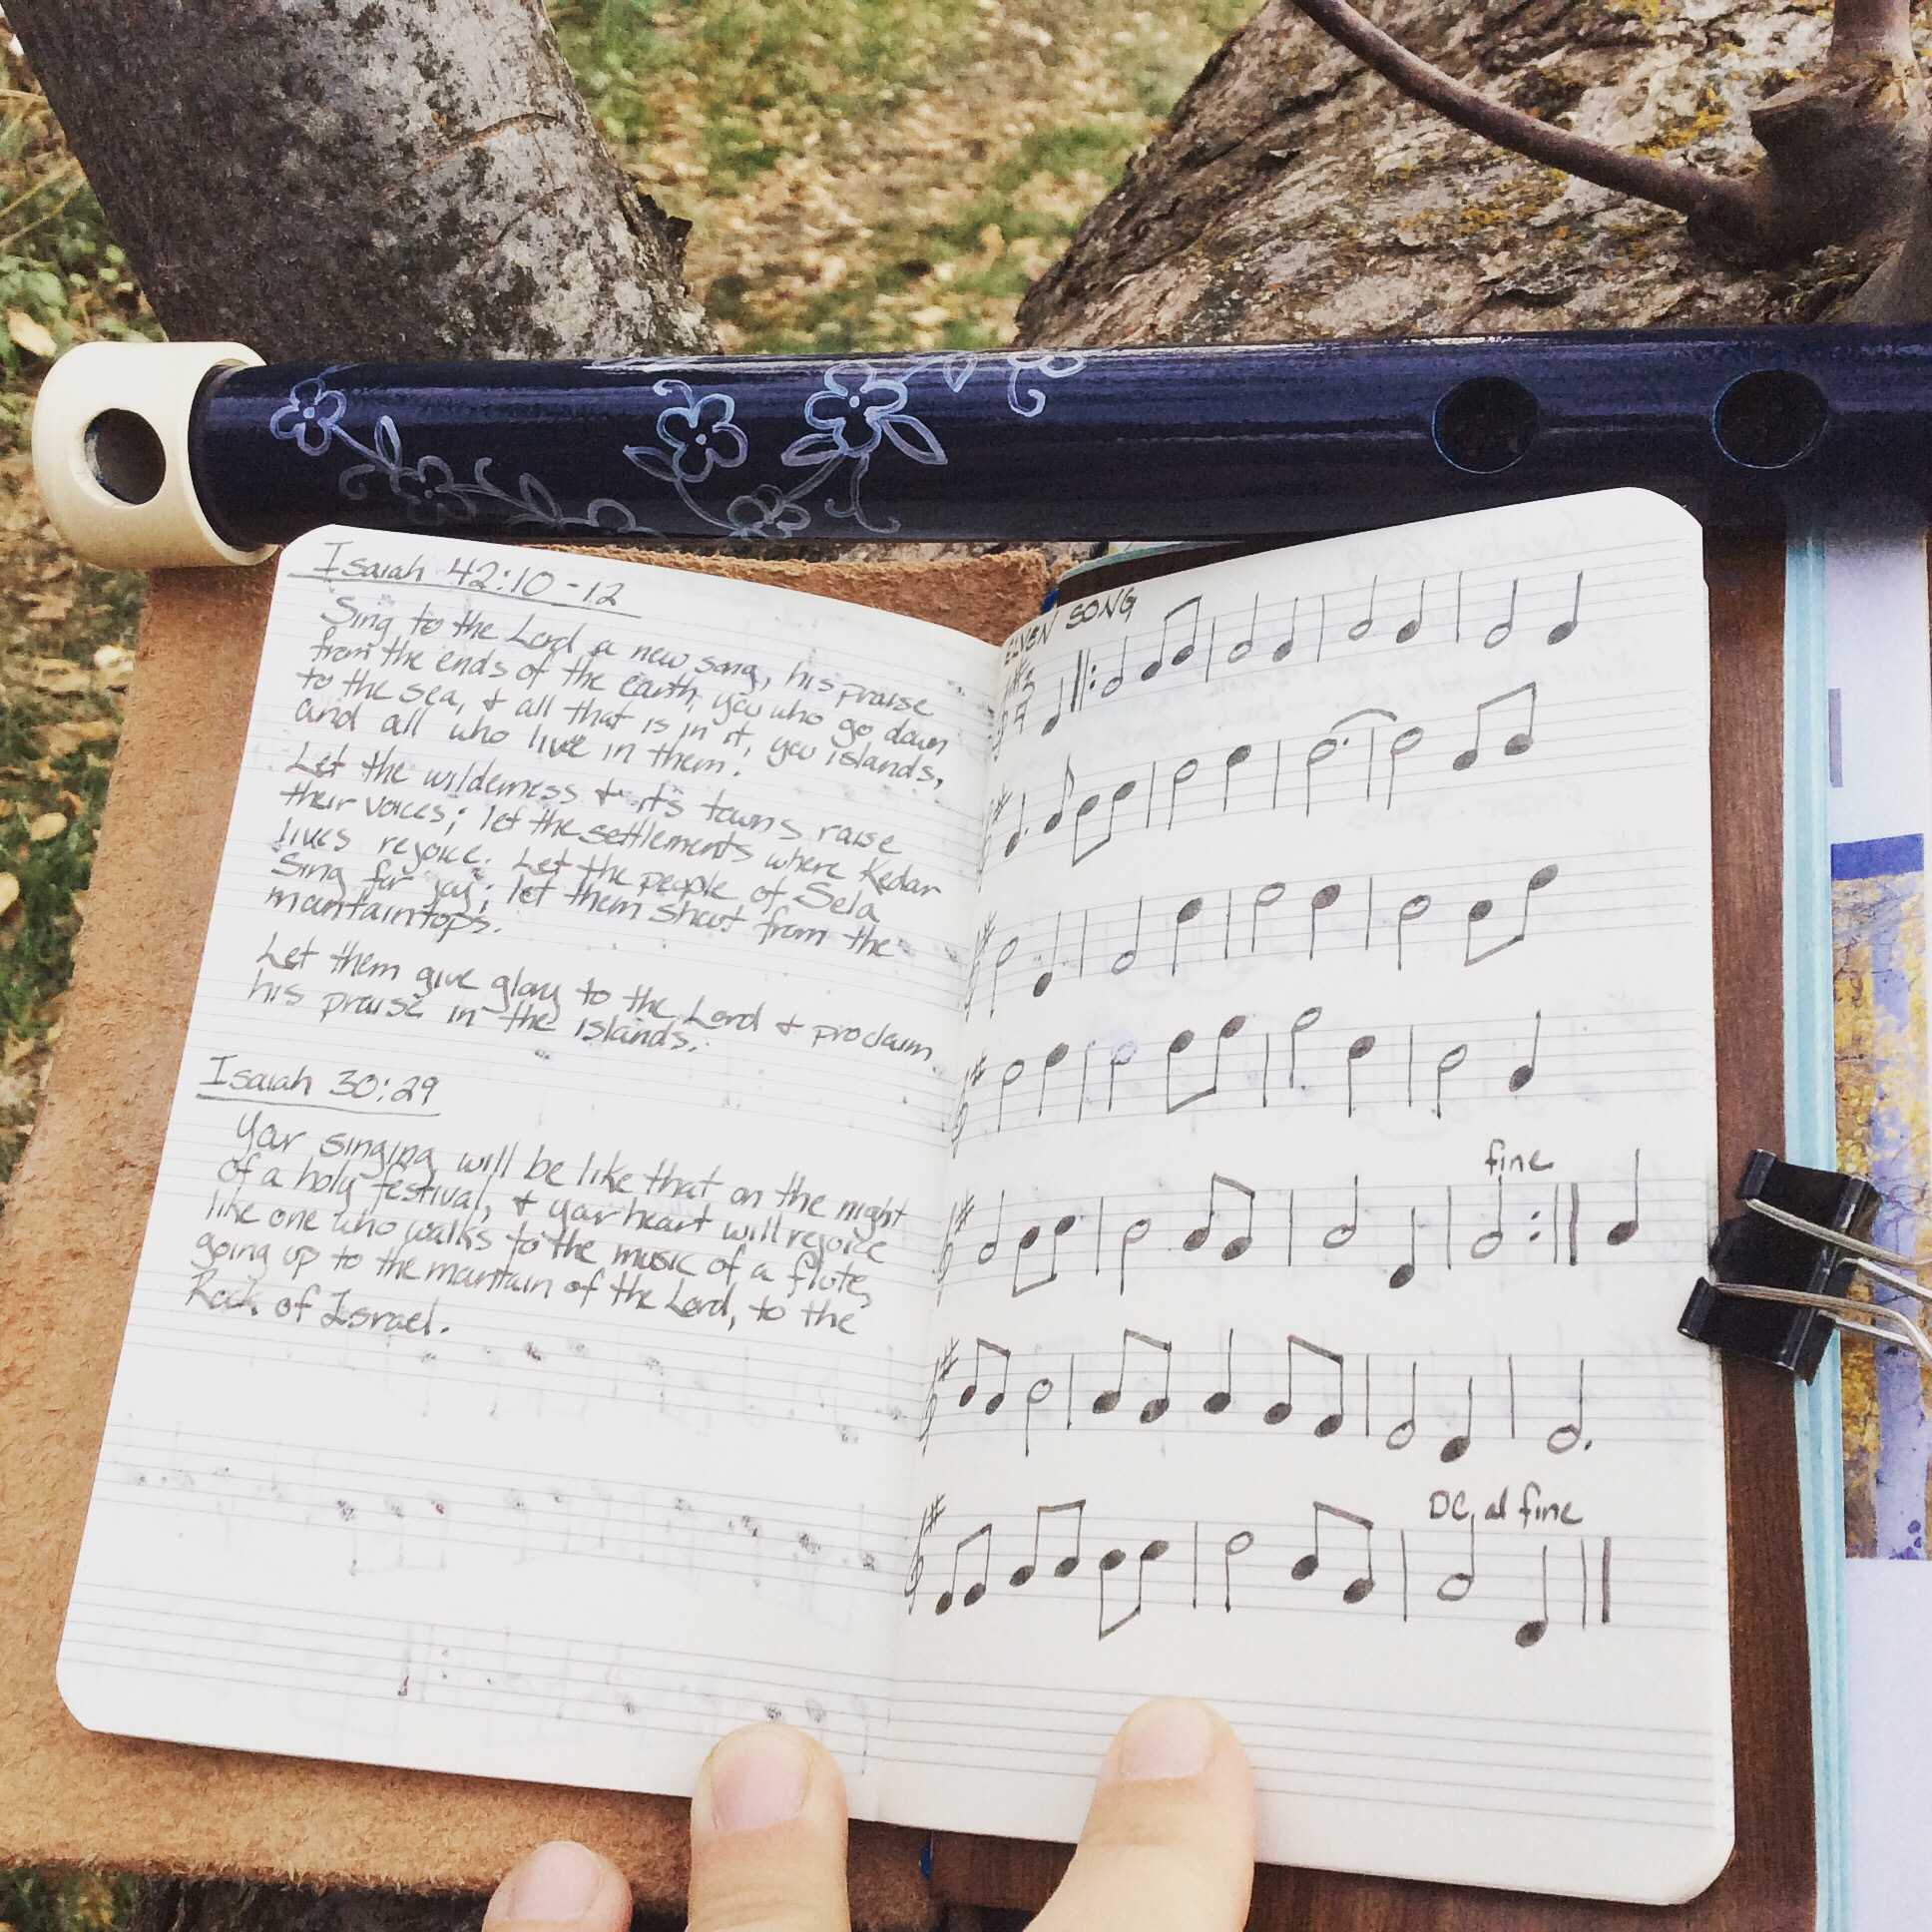 Isaiah 42:10-12
Sing to the Lord a new song, his praise
from the ends of the earth, you who go down
to the sea, & all that is in it, you islands,
and all who live in them.
Let the wilderness & it's towns raise
their voices; let the settlements where Kedar
lives rejoice. Let the people of Sela
Sing for joy; let them shout from the
mountaintops.
Let them give glory to the Lord & proclaim
his praise in the islands.
Isaiah 30:29
Your singing will be like that on the night
of a holy festival, & your heart will rejoice
like one who walks to the music of a flute,
going up to the mountain of the Lord, to the
Rock of Israel.
ELVEN SONG
fine
DC al fine